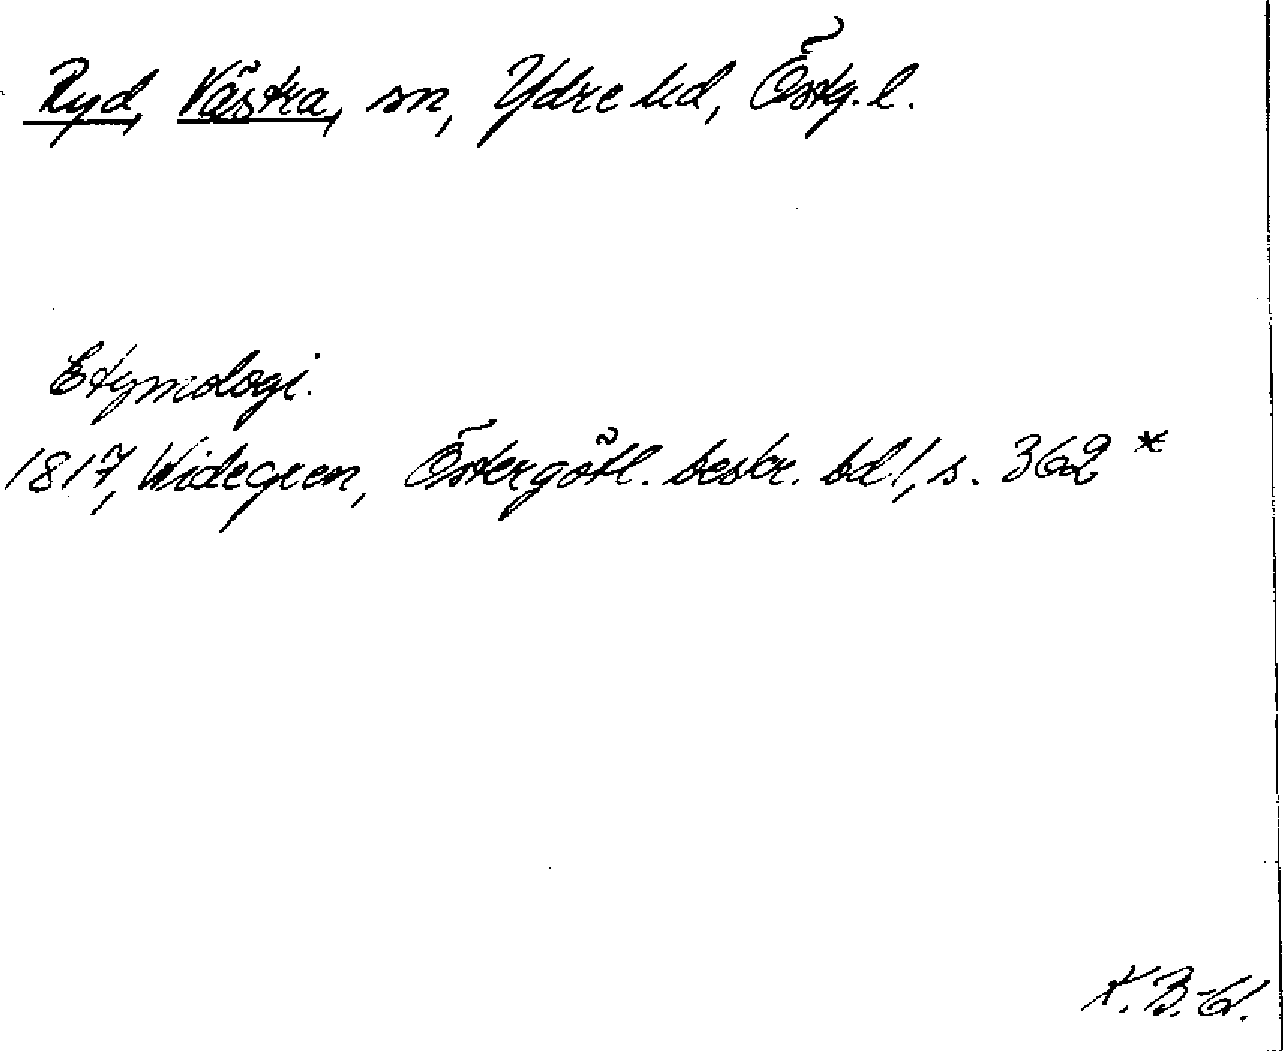 Ryd, Västra, sn, Ydre hd, Östg. l.
Etymologi.
1817, Widegren, Östergötl. beskr. bd 1, s. 362 *
K. B.-W.